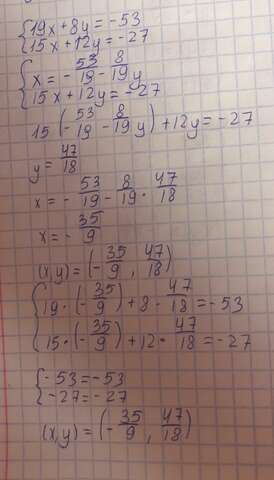 {19x+8y=-53
{15x+12y=-27
{x=-53/19-8/19y
{15x+12y=-27
15(-53/19-8/19y)+12y=-27
y=47/18
x=-53/19-8/19·47/18
x=-35/9
(x,y)=(-35/9, 47/18)
{19·(-35/9)+8·47/18=-53
{15·(-35/9)+12·47/18=-27
{-53=-53
{-27=-27
(x,y)=(-35/9, 47/18)